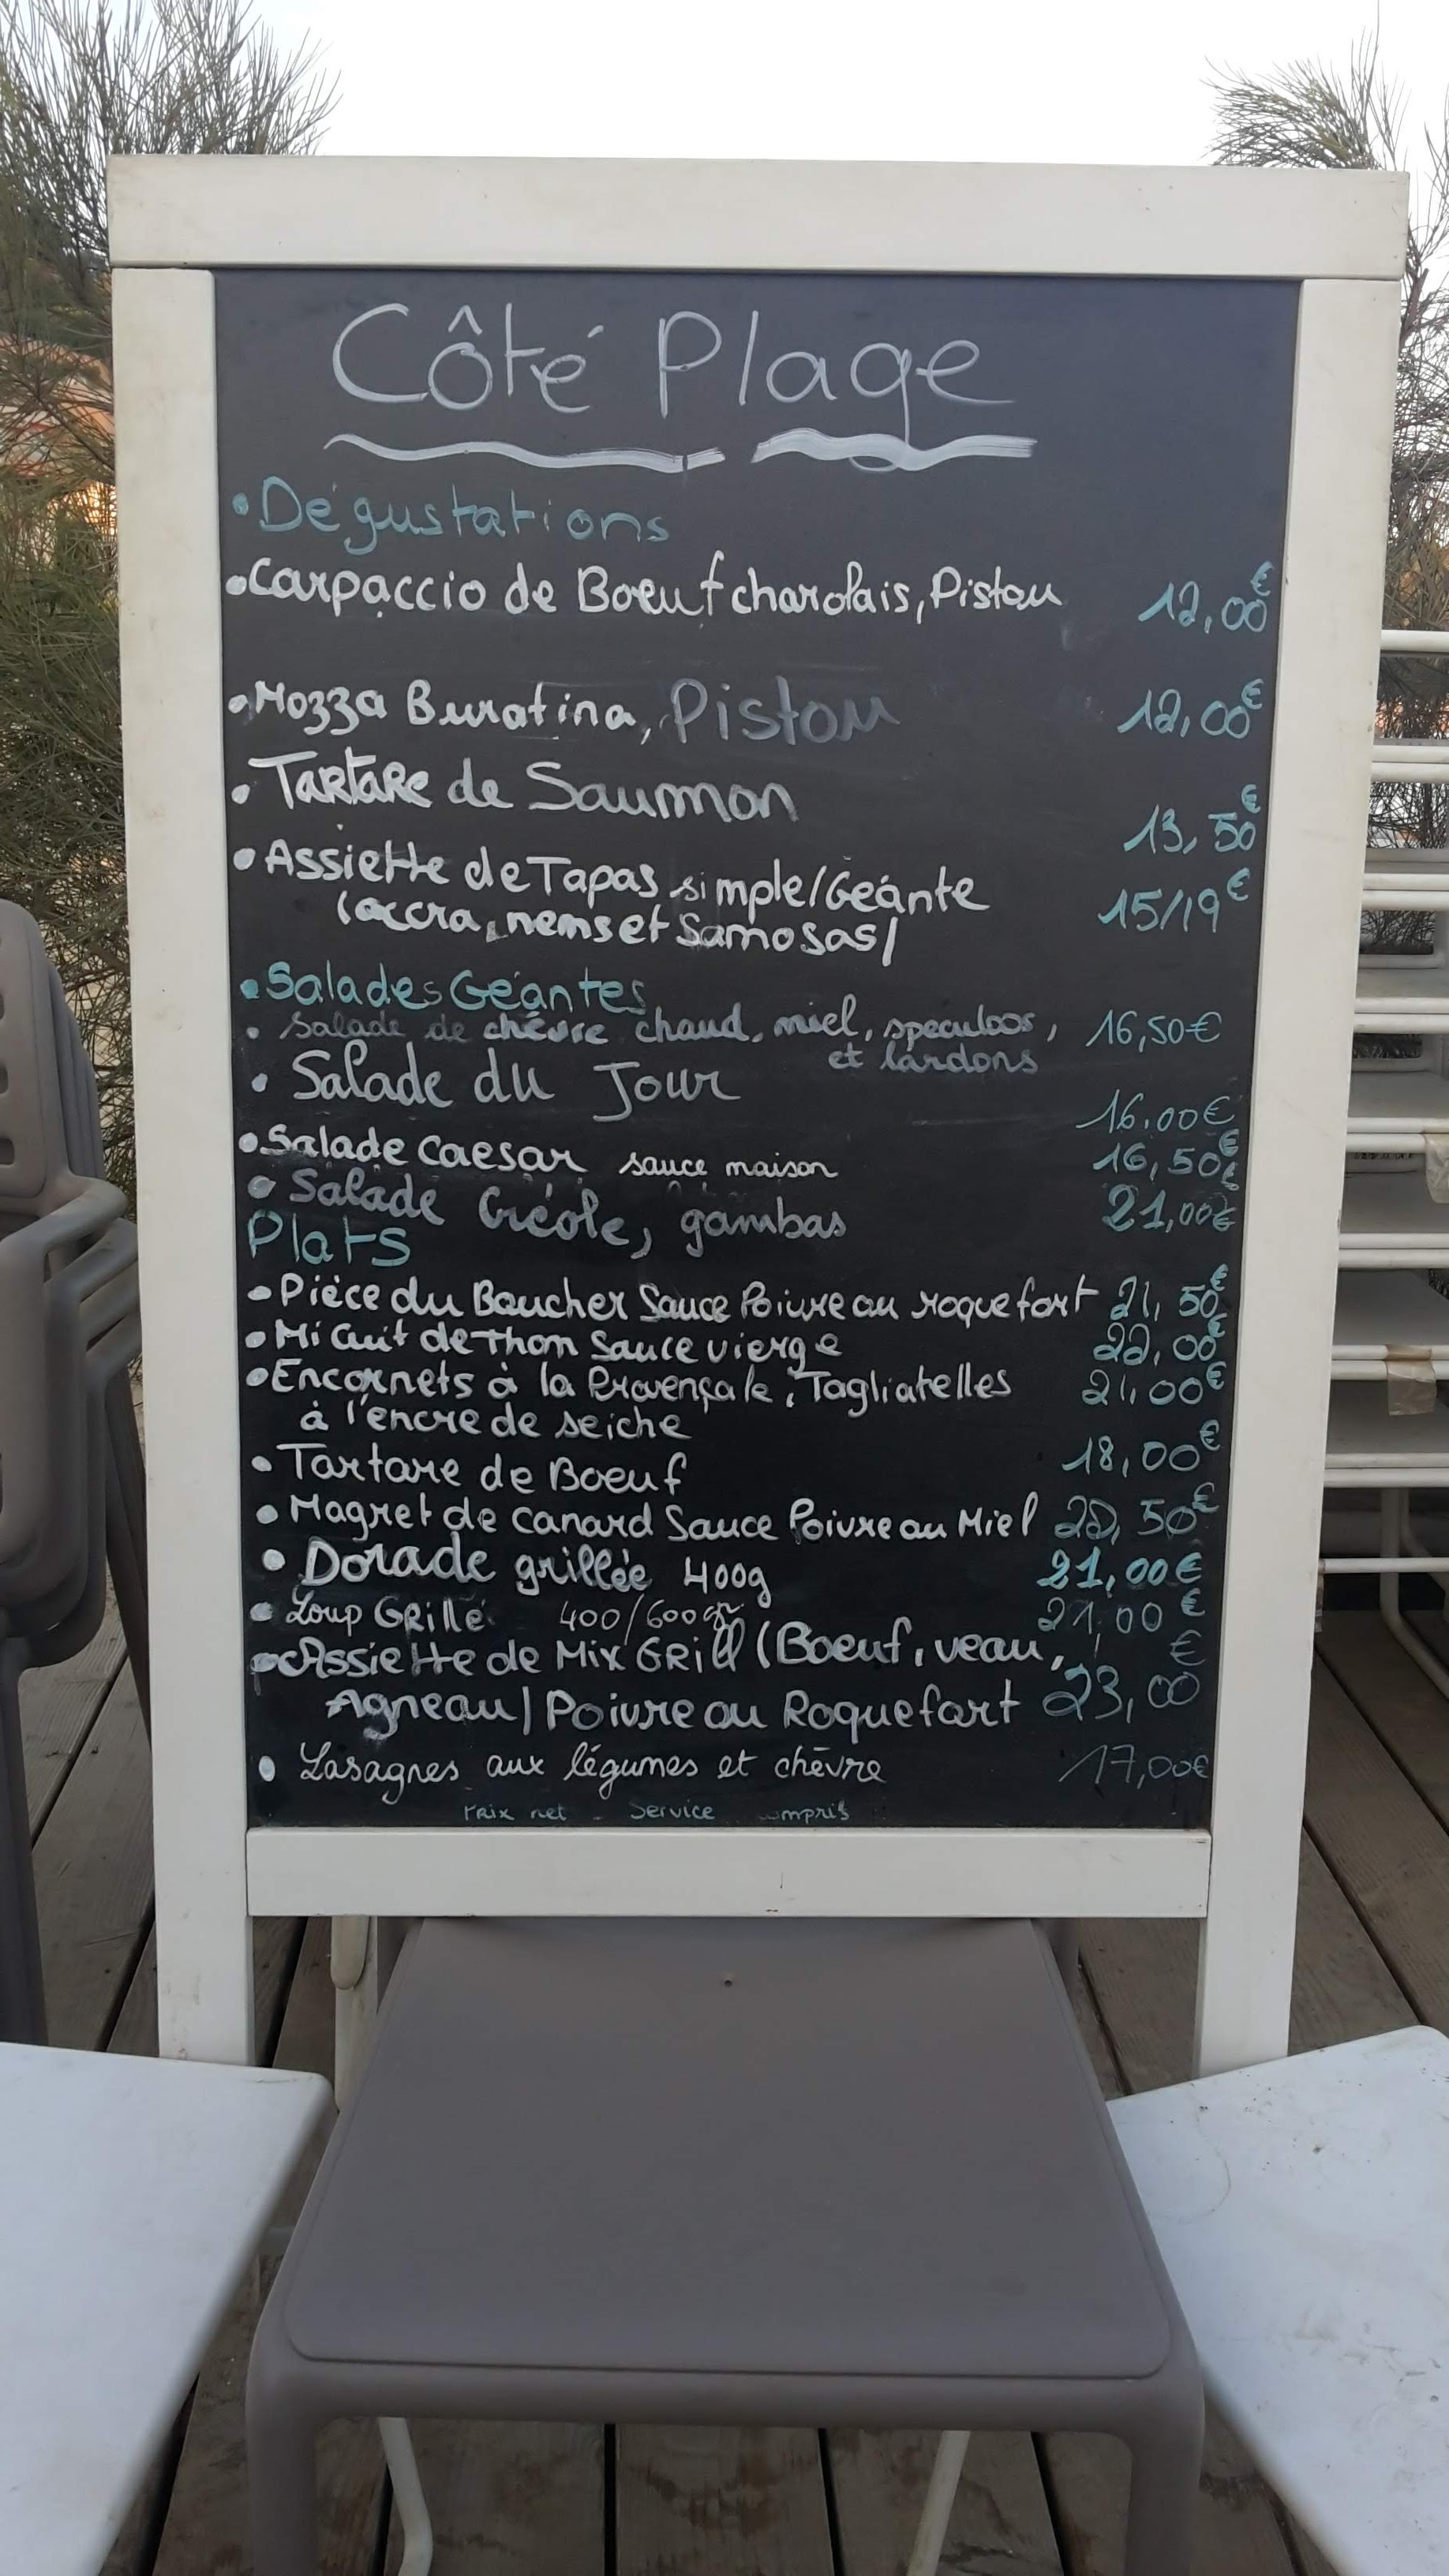 Côté Plage
• Dégustations
• Carpaccio de Boeuf charolais, Pistou 12,00€
• Mozza Buratina, Pistou 12,00€
• Tartare de Saumon 13,50€
• Assiette de Tapas simple/Géante 15/19€
(accra, nems et Samosas)
• Salades Géantes
• Salade de chèvre chaud, miel, speculoos, 16,50€
et lardons
• Salade du Jour 16.00€
• Salade Caesar sauce maison 16,50€
• Salade Créole, gambas 21,00€
Plats
• Pièce du Boucher Sauce Poivre ou roquefort 21,50€
• Mi Cuit de Thon Sauce vierge 22,00€
• Encornets à la Provençale, Tagliatelles 21,00€
à l'encre de seiche
• Tartare de Boeuf 18,00€
• Magret de canard Sauce Poivre ou Miel 20,50€
• Dorade grillée 400g 21,00€
• Loup Grillé 400/600gr 21.00€
• Assiette de Mix GRill (Boeuf, veau,
Agneau) Poivre ou Roquefort 23,00€
• Lasagnes aux légumes et chèvre 17,00€
Prix net - Service